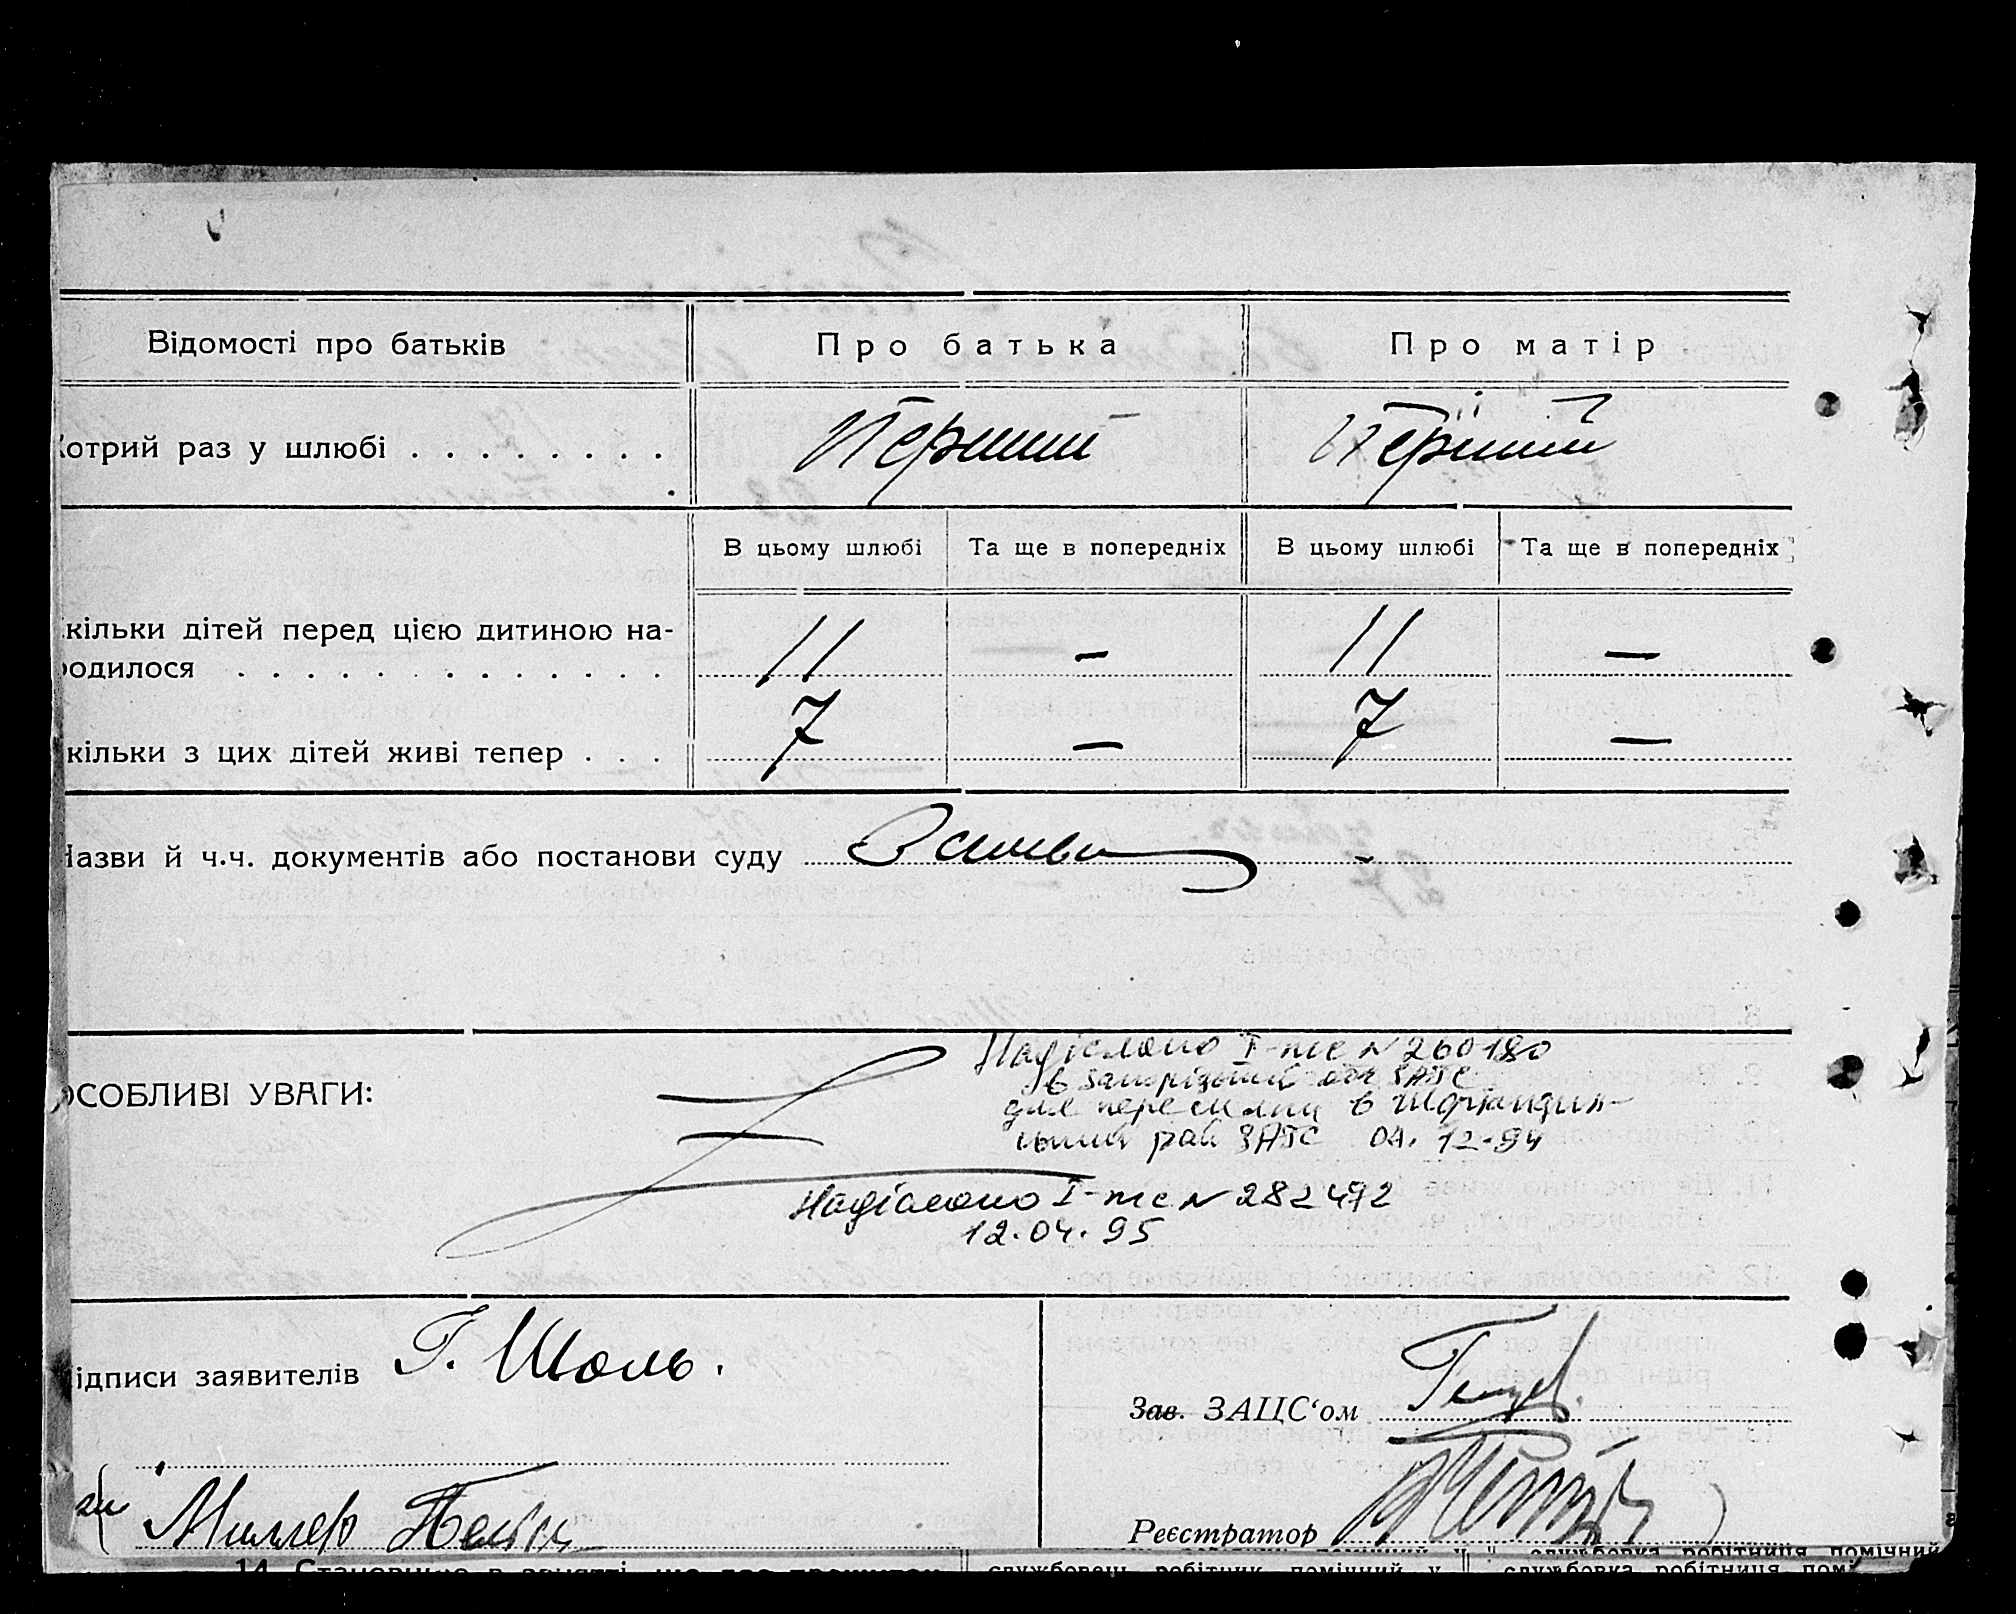 Відомості про батьків Про батька Про матір
Котрий раз у шлюбі . . . . . . . . Перший Перший
В цьому шлюбі Та ще в попередніх В цьому шлюбі Та ще в попередніх
кільки дітей перед цією дитиною на-
родилося . . . . . . . . . . . . . 11 — 11 —
кільки з цих дітей живі тепер . . . 7 — 7 —
Назви й ч.ч. документів або постанови суду
Надіслано І-ше N 260180
в Запорізький обл ЗАГС
для пересилки в
ОСОБЛИВІ УВАГИ:
рай ЗАГС 04. 12-94
Надіслано І-ше N 282472
12.04.95
ідписи заявителів Г. Шоль.
Зав. ЗАЦС‘ом
Миллер
Реєстратор
службовка робітниця помічний
14. Становище в занятті, що дає прожиток
службовець робітник помічний ч службовка робітниця помі